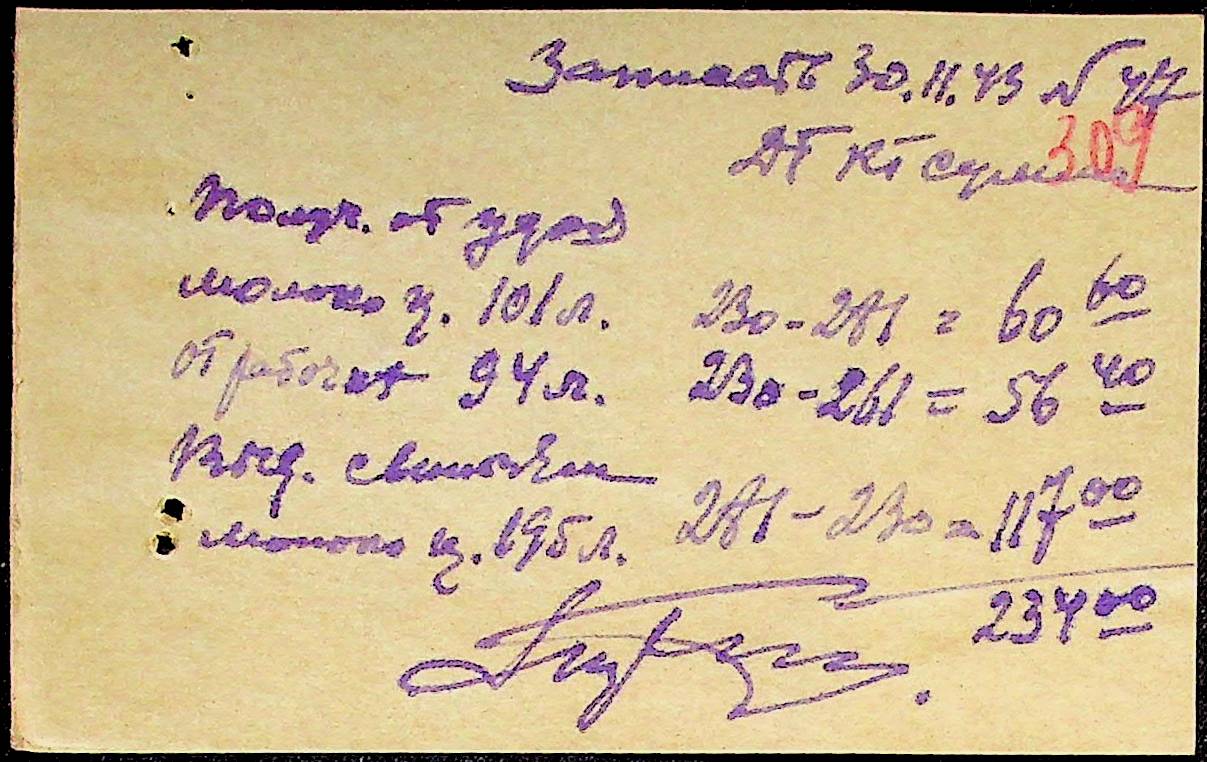 Записать 30.11.43 № 47
309
Дт Кт сумма
Получ. от удоя
молоко ц. 101 л. 230-281 = 60 60
от рабочих 94 л. 230-261 = 56 40
Выд. свиньям
молоко ц. 195 л. 281-230 = 117 00
234 00